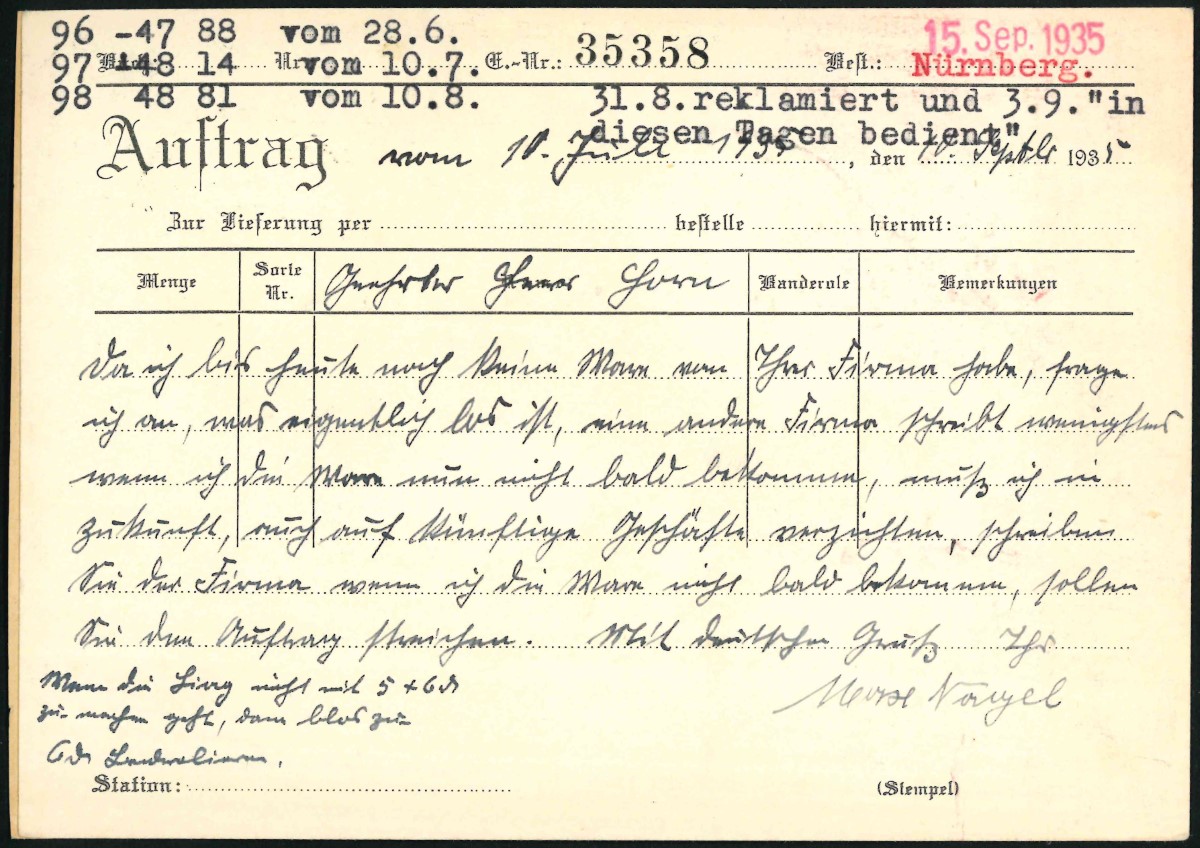 96 -47 88 vom 28.6.
97 -48 14 vom 10.7. E.-Nr.: 35358 Best.: 15. Sep. 1935 Nürnberg.
98 48 81 vom 10.8. 31.8.reklamiert und 3.9."in
diesen Tagen bedient"
Auftrag vom 10. Juli 1935, den 10. Septbr 1935
Zur Lieferung per bestelle hiermit:
Menge Sorte Nr. Geehrter Herr Horn Banderole Bemerkungen
Da ich bis heute noch keine Ware von Ihrer Firma habe, frage
ich an, was eigentlich los ist, eine andere Firma schreibt wenigstens
wenn ich die Ware nun nicht bald bekomme, muß ich in
Zukunft, auch auf künftige Geschäfte verzichten, schreiben
Sie der Firma wenn ich die Ware nicht bald bekomme, sollen
Sie den Auftrag streichen. Mit deutschen Gruß Ihr
Max Nagel
Wenn die nicht mit 5 + 6
zu machen geht, dann blos zu
6
Station: (Stempel)